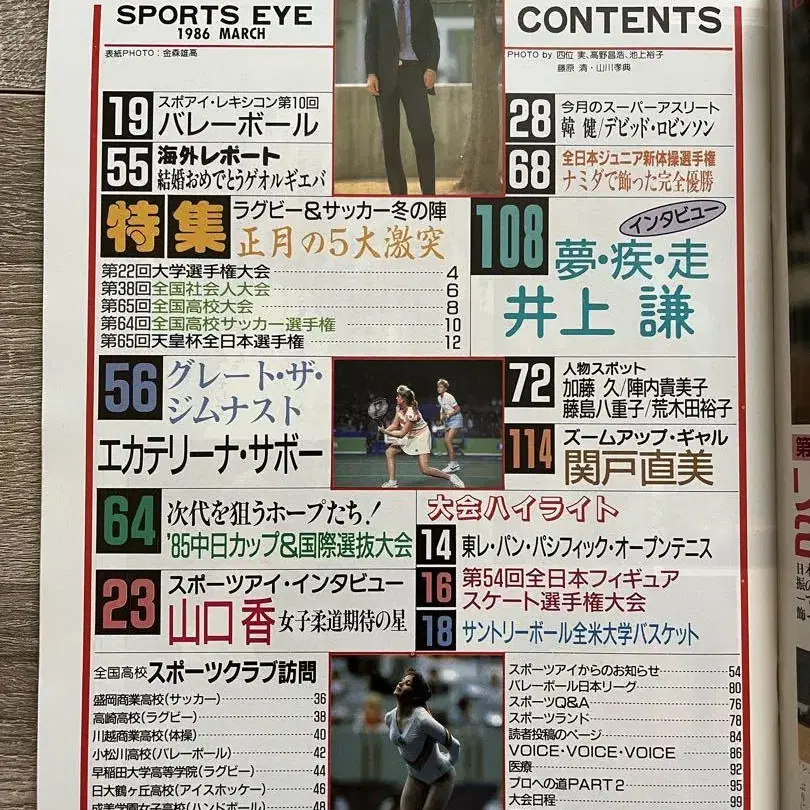 SPORTS EYE
1986 MARCH
表紙PHOTO：金森雄高
CONTENTS
PHOTO by 四位 実、高野昌浩、池上裕子
藤原 清・山川孝典
19 スポアイ・レキシコン第10回
バレーボール
55 海外レポート
結婚おめでとうゲオルギエバ
28 今月のスーパーアスリート
韓 健/デビッド・ロビンソン
68 全日本ジュニア新体操選手権
ナミダで飾った完全優勝
特集 ラグビー&サッカー冬の陣
正月の5大激突
第22回大学選手権大会 4
第38回全国社会人大会 6
第65回全国高校大会 8
第64回全国高校サッカー選手権 10
第65回天皇杯全日本選手権 12
108 インタビュー
夢・疾・走
井上 謙
56 グレート・ザ・
ジムナスト
エカテリーナ・サボー
72 人物スポット
加藤 久/陣内貴美子
藤島八重子/荒木田裕子
114 ズームアップ・ギャル
関戸直美
64 次代を狙うホープたち!
'85中日カップ&国際選抜大会
23 スポーツアイ・インタビュー
山口 香 女子柔道期待の星
大会ハイライト
14 東レ・パン・パシフィック・オープンテニス
16 第54回全日本フィギュア
スケート選手権大会
18 サントリーボール全米大学バスケット
全国高校 スポーツクラブ訪問
盛岡商業高校(サッカー) 36
高崎高校(ラグビー) 38
川越商業高校(体操) 40
小松川高校(バレーボール) 42
早稲田大学高等学院(ラグビー) 44
日大鶴ヶ丘高校(アイスホッケー) 46
成美学園女子高校(ハンドボール) 48
スポーツアイからのお知らせ 54
バレーボール日本リーグ 80
スポーツQ&A 76
スポーツランド 78
読者投稿のページ 84
VOICE・VOICE・VOICE 86
医療 92
プロへの道PART2 95
大会日程 99